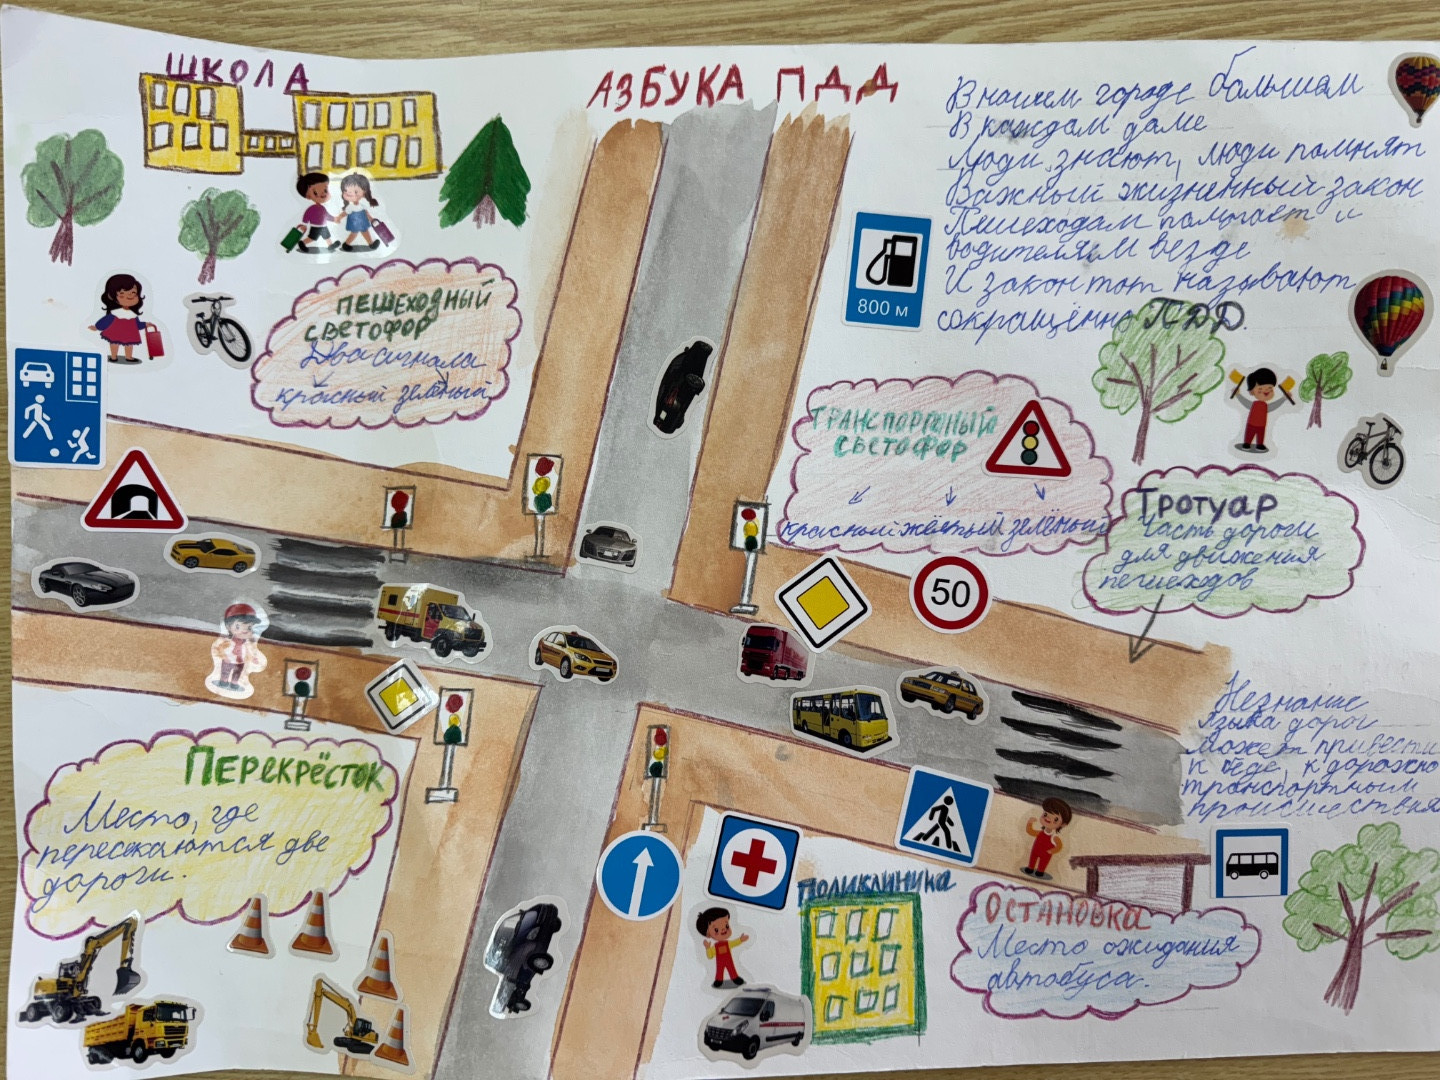 ШКОЛА
АЗБУКА ПДД
В нашем городе большом
В каждом доме
Люди знают, люди помнят
Важный жизненный закон
Пешеходам помогает и
водителям везде
И закон тот называют
сокращённо ПДД.
800 м
ПЕШЕХОДНЫЙ
СВЕТОФОР
Два сигнала
красный зелёный
ТРАНСПОРТНЫЙ
СВЕТОФОР
красный жёлтый зелёный
Тротуар
Часть дороги
для движения
пешеходов
50
Незнание
языка дорог
может привести
к беде, к дорожно
транспортным
происшествия
ПЕРЕКРЁСТОК
Место, где
пересекаются две
дороги.
ПОЛИКЛИНИКА
ОСТАНОВКА
Место ожидания
автобуса.